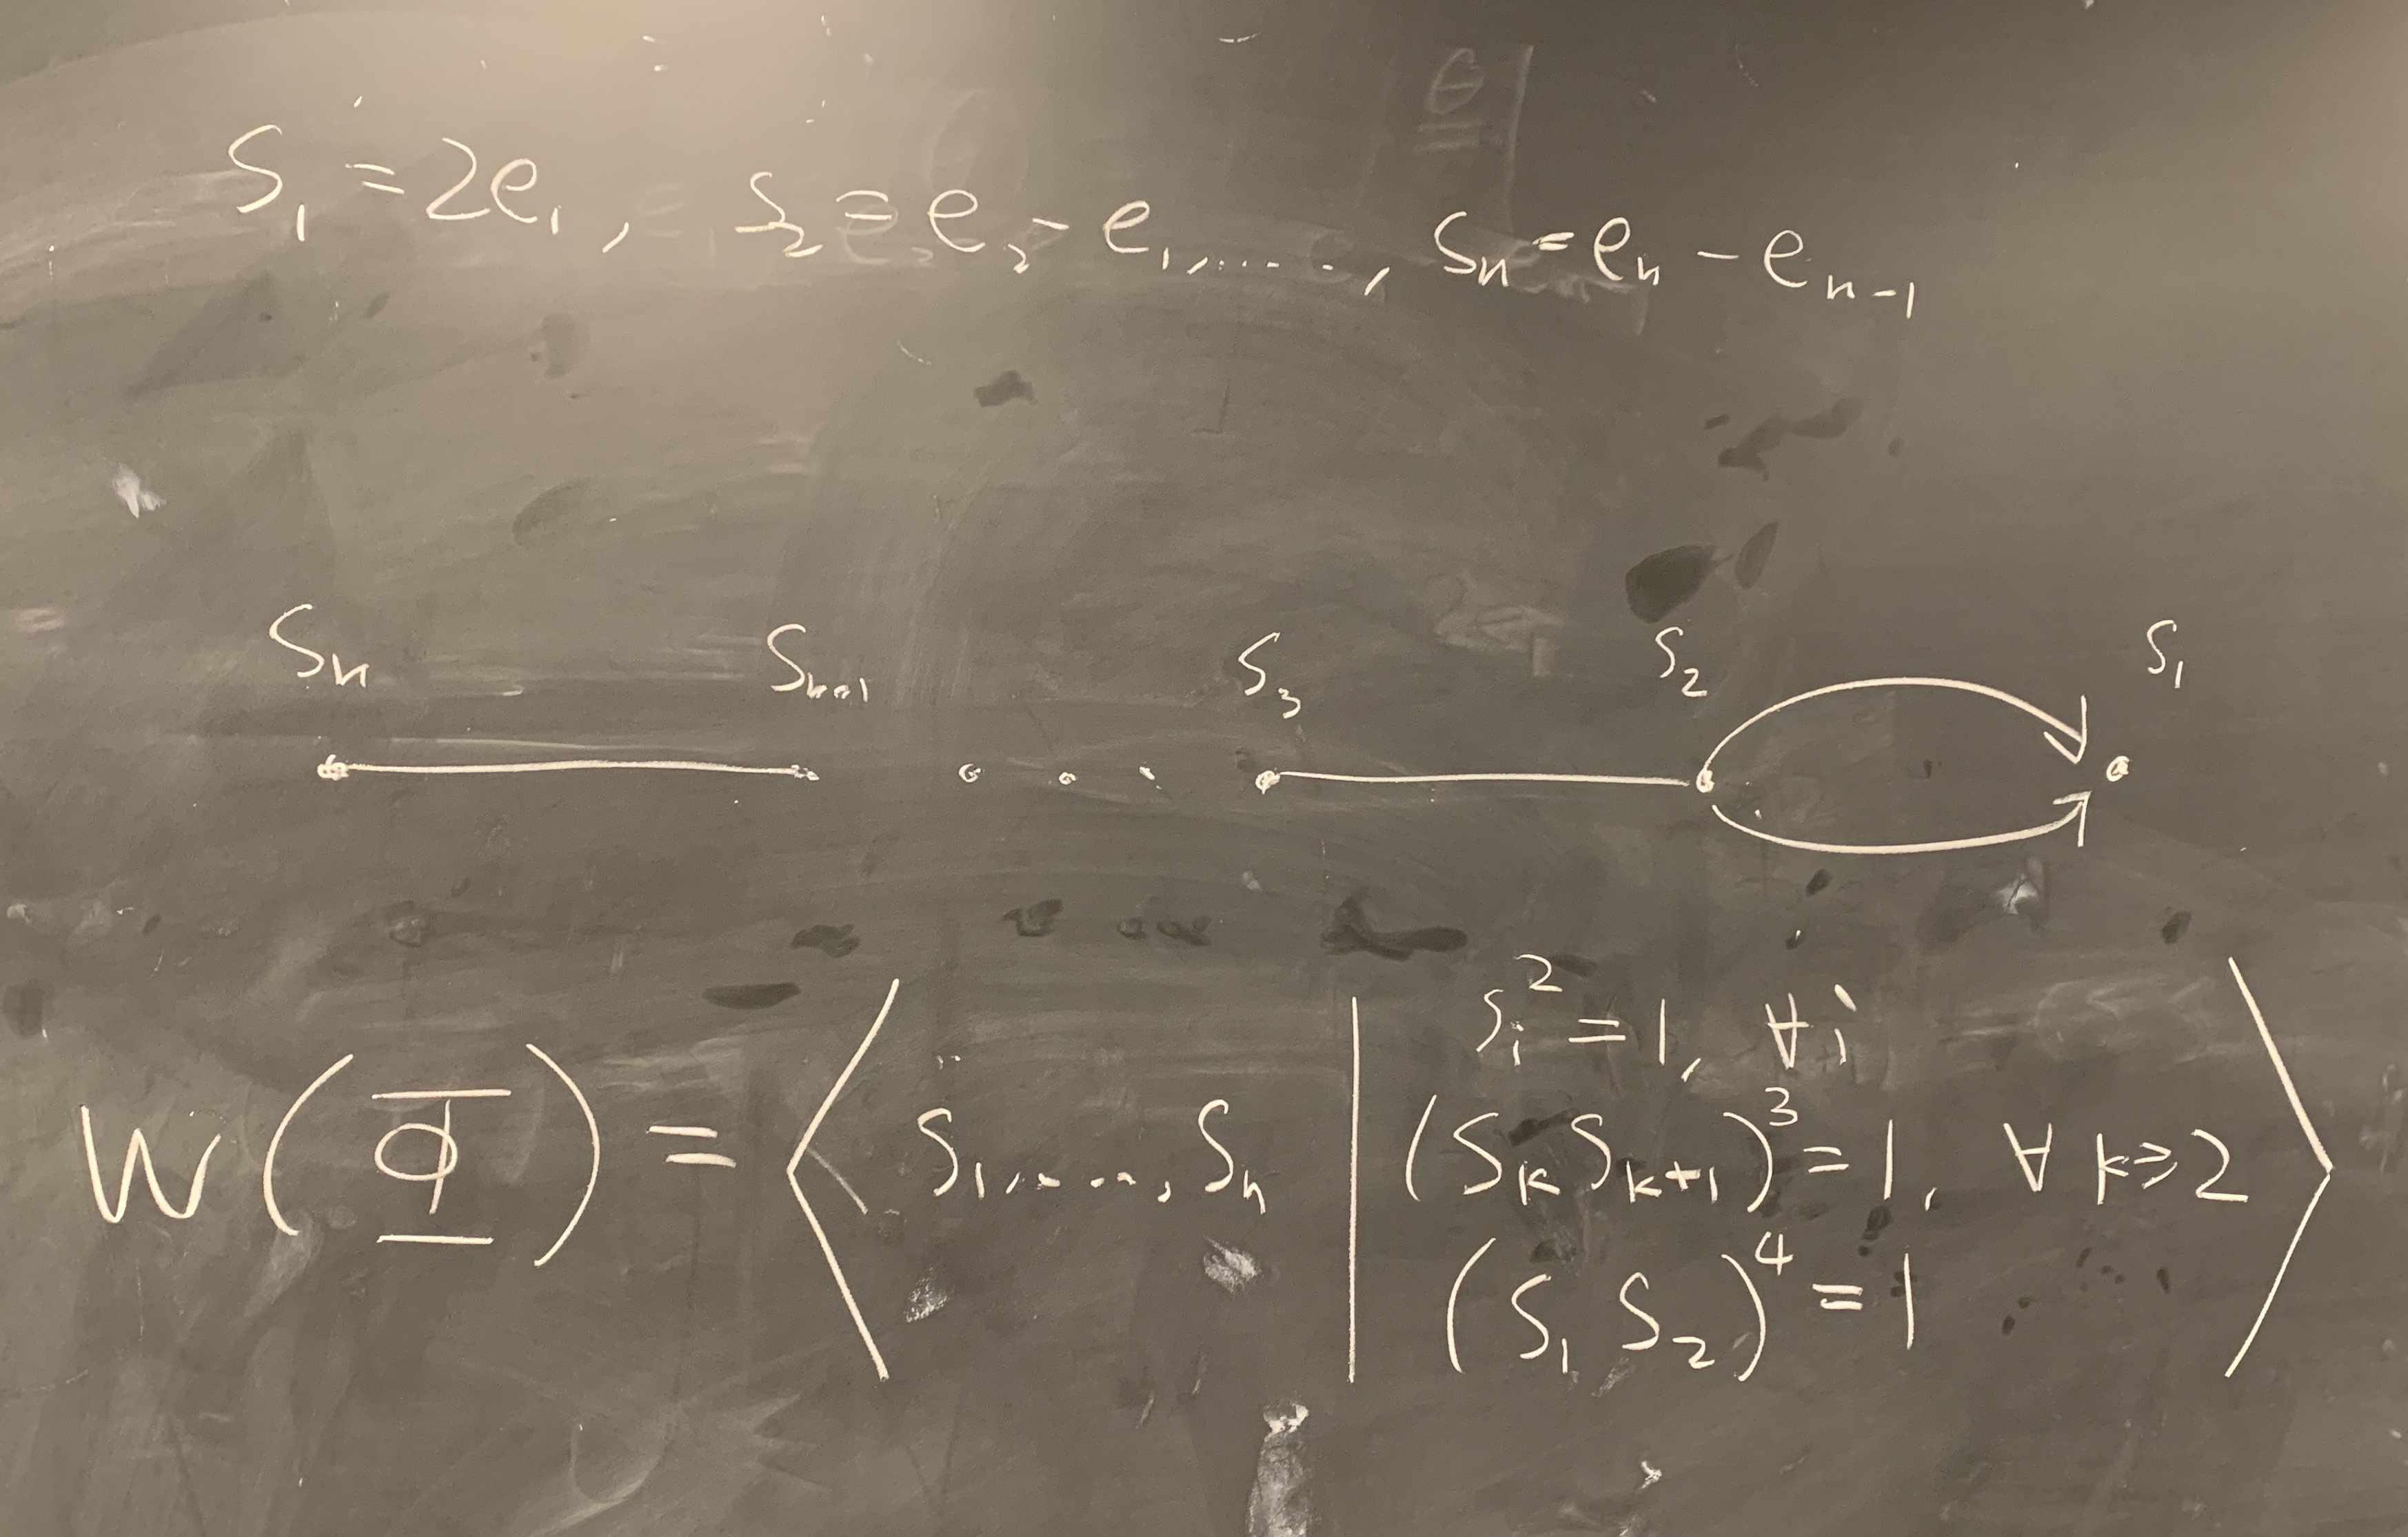 S₁ = 2e₁, S₂ = e₂ - e₁, ....., Sₙ = eₙ - eₙ₋₁
Sₙ Sₙ₋₁ S₃ S₂ S₁
W(Φ) = ⟨ S₁, ...., Sₙ | Sᵢ² = 1, ∀i
(SₖSₖ₊₁)³ = 1, ∀ k ≥ 2
(S₁ S₂)⁴ = 1 ⟩